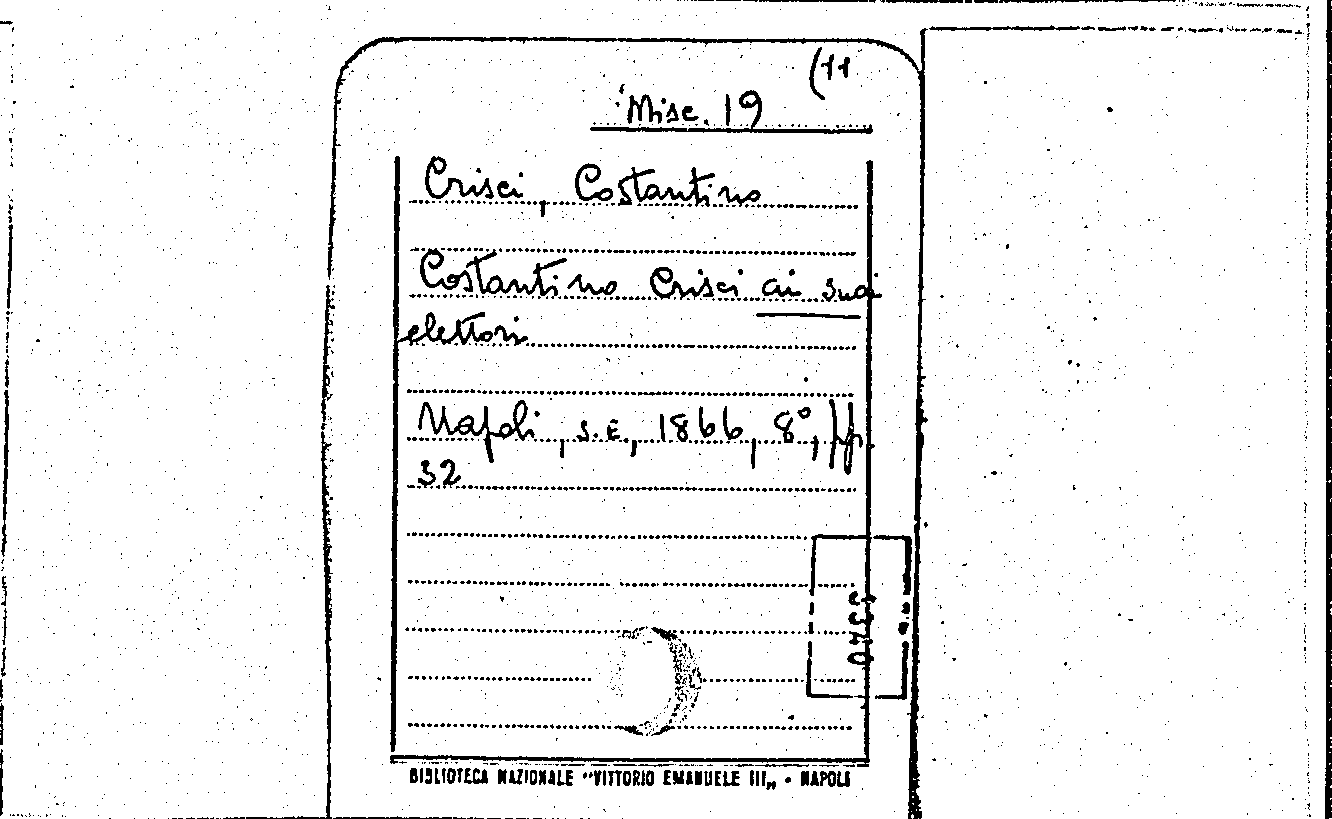 (11
Misc. 19
Crisci, Costantino
Costantino Crisci ai suoi
elettori
Napoli, s.e., 1866, 8°, pp.
32
BIBLIOTECA NAZIONALE "VITTORIO EMANUELE III„ - NAPOLI